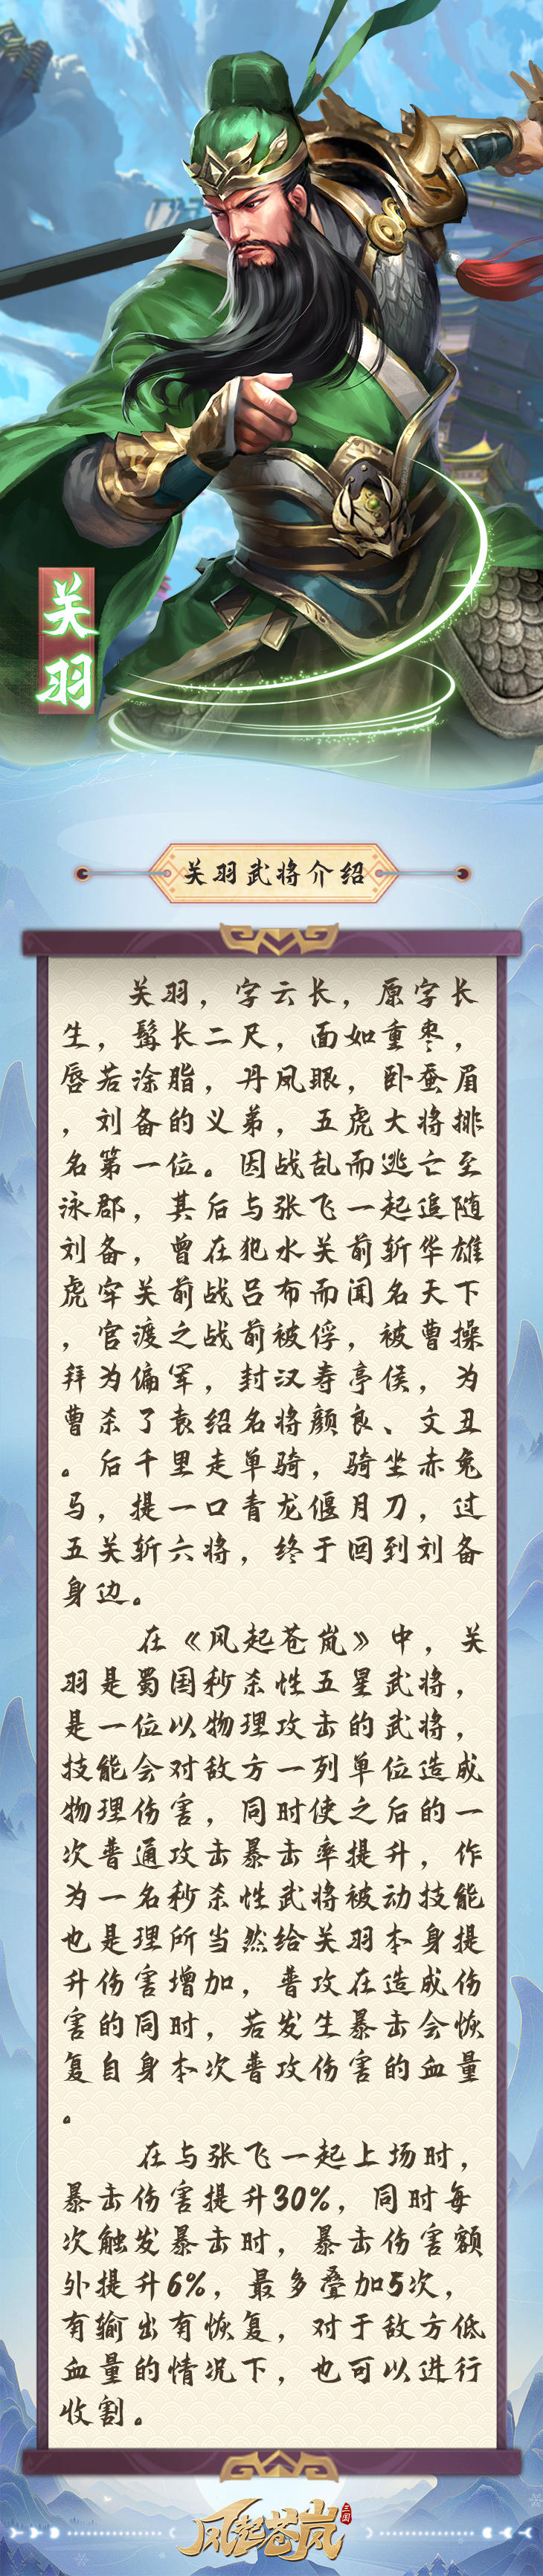 关羽
关羽武将介绍
关羽，字云长，原字长
生，髯长二尺，面如重枣，
唇若涂脂，丹凤眼，卧蚕眉
，刘备的义弟，五虎大将排
名第一位。因战乱而逃亡至
泳郡，其后与张飞一起追随
刘备，曾在犯水关前斩华雄
虎牢关前战吕布而闻名天下
，官渡之战前被俘，被曹操
拜为偏军，封汉寿亭侯，为
曹杀了袁绍名将颜良、文丑
。后千里走单骑，骑坐赤兔
马，提一口青龙偃月刀，过
五关斩六将，终于回到刘备
身边。
在《风起苍岚》中，关
羽是蜀国秒杀性五星武将，
是一位以物理攻击的武将，
技能会对敌方一列单位造成
物理伤害，同时使之后的一
次普通攻击暴击率提升，作
为一名秒杀性武将被动技能
也是理所当然给关羽本身提
升伤害增加，普攻在造成伤
害的同时，若发生暴击会恢
复自身本次普攻伤害的血量
。
在与张飞一起上场时，
暴击伤害提升30%，同时每
次触发暴击时，暴击伤害额
外提升6%，最多叠加5次，
有输出有恢复，对于敌方低
血量的情况下，也可以进行
收割。
风起苍岚
三国